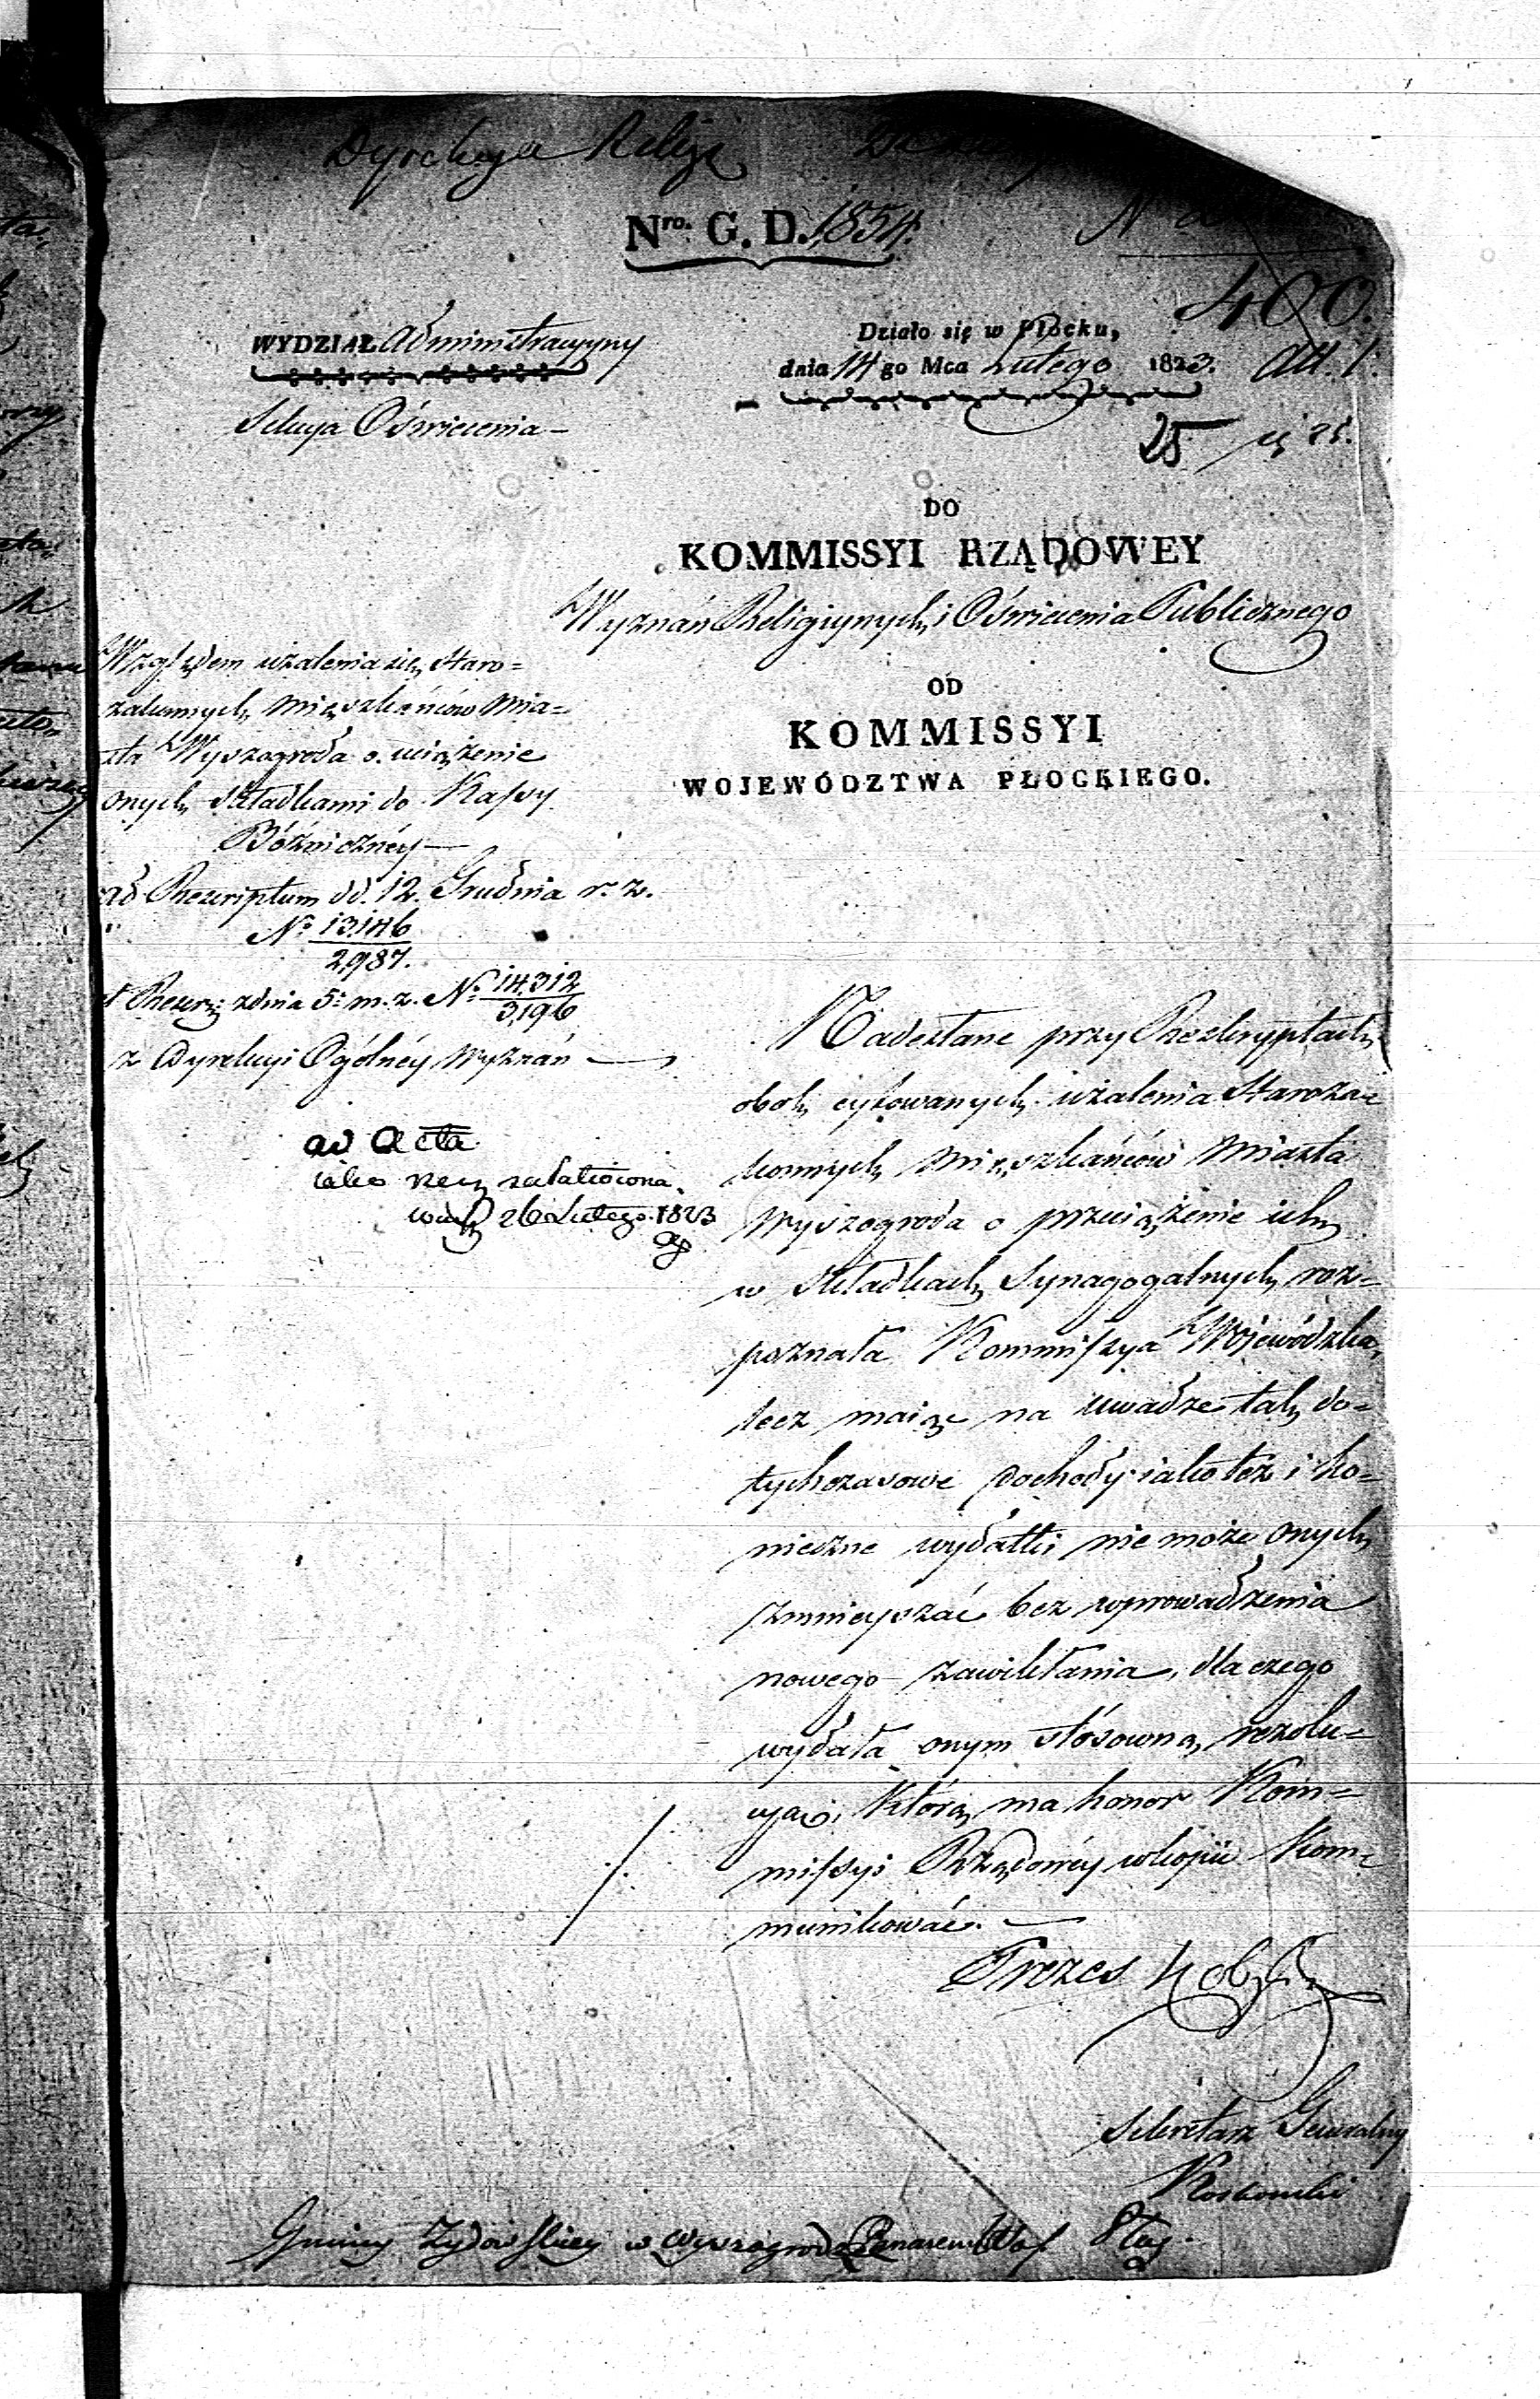 Dyrekcya Religi
Nro. G. D. 1854.
400.
WYDZIAŁ Administracyyny
Sekcya Oświecenia —
Działo się w Płocku,
dnia 14 go Mca Lutego 1823. All. 1.
25
DO
KOMMISSYI RZĄDOWEY
Wyznań Religiynych i Oświecenia Publicznego
OD
KOMMISSYI
WOJEWÓDZTWA PŁOCKIEGO.
Względem użalenia się Staro=
zakonnych Mieszkańców Mia=
sta Wyszogroda o uciążenie
onych składkami do Kassy
Bóżniczney —
ad Rescriptum dd. 12. Grudnia r. z.
No 13146
2987.
et Rescr: z dnia 5: m. z. No 14312
3196
z Dyrekcyi Ogólnéy Wyznań —
ad Acta
iako rzecz załatwiona.
26 Lutego 1823
Nadesłane przy Reskryptach
obok cytowanych użalenia Staroza=
konnych Mieszkańców Miasta
Wyszogroda o przeciążenie ich
w Składkach Synagogalnych, roz=
poznała Kommissya Wojewódzka,
lecz maiąc na uwadze tak do=
tychczasowe dochody iako też i ko=
nieczne wydatki nie może onych
zmnieyszać bez wprowadzenia
nowego zawikłania, dla czego
wydała onym stósowną rezolu=
cyą, którą ma honor Kom=
missyi Rządowéy w kopii kom=
munikować. —
Prezes
Sekretarz Generalny
Gminy Żydowskiey w Wyszogrodzie